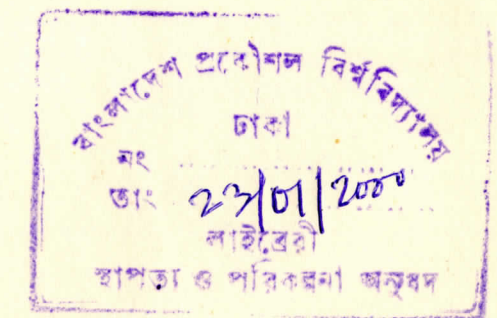 বাংলাদেশ প্রকৌশল বিশ্ববিদ্যালয়
ঢাকা
নং
তাং 23/01/2000
লাইব্রেরী
স্থাপত্য ও পরিকল্পনা অনুষদ